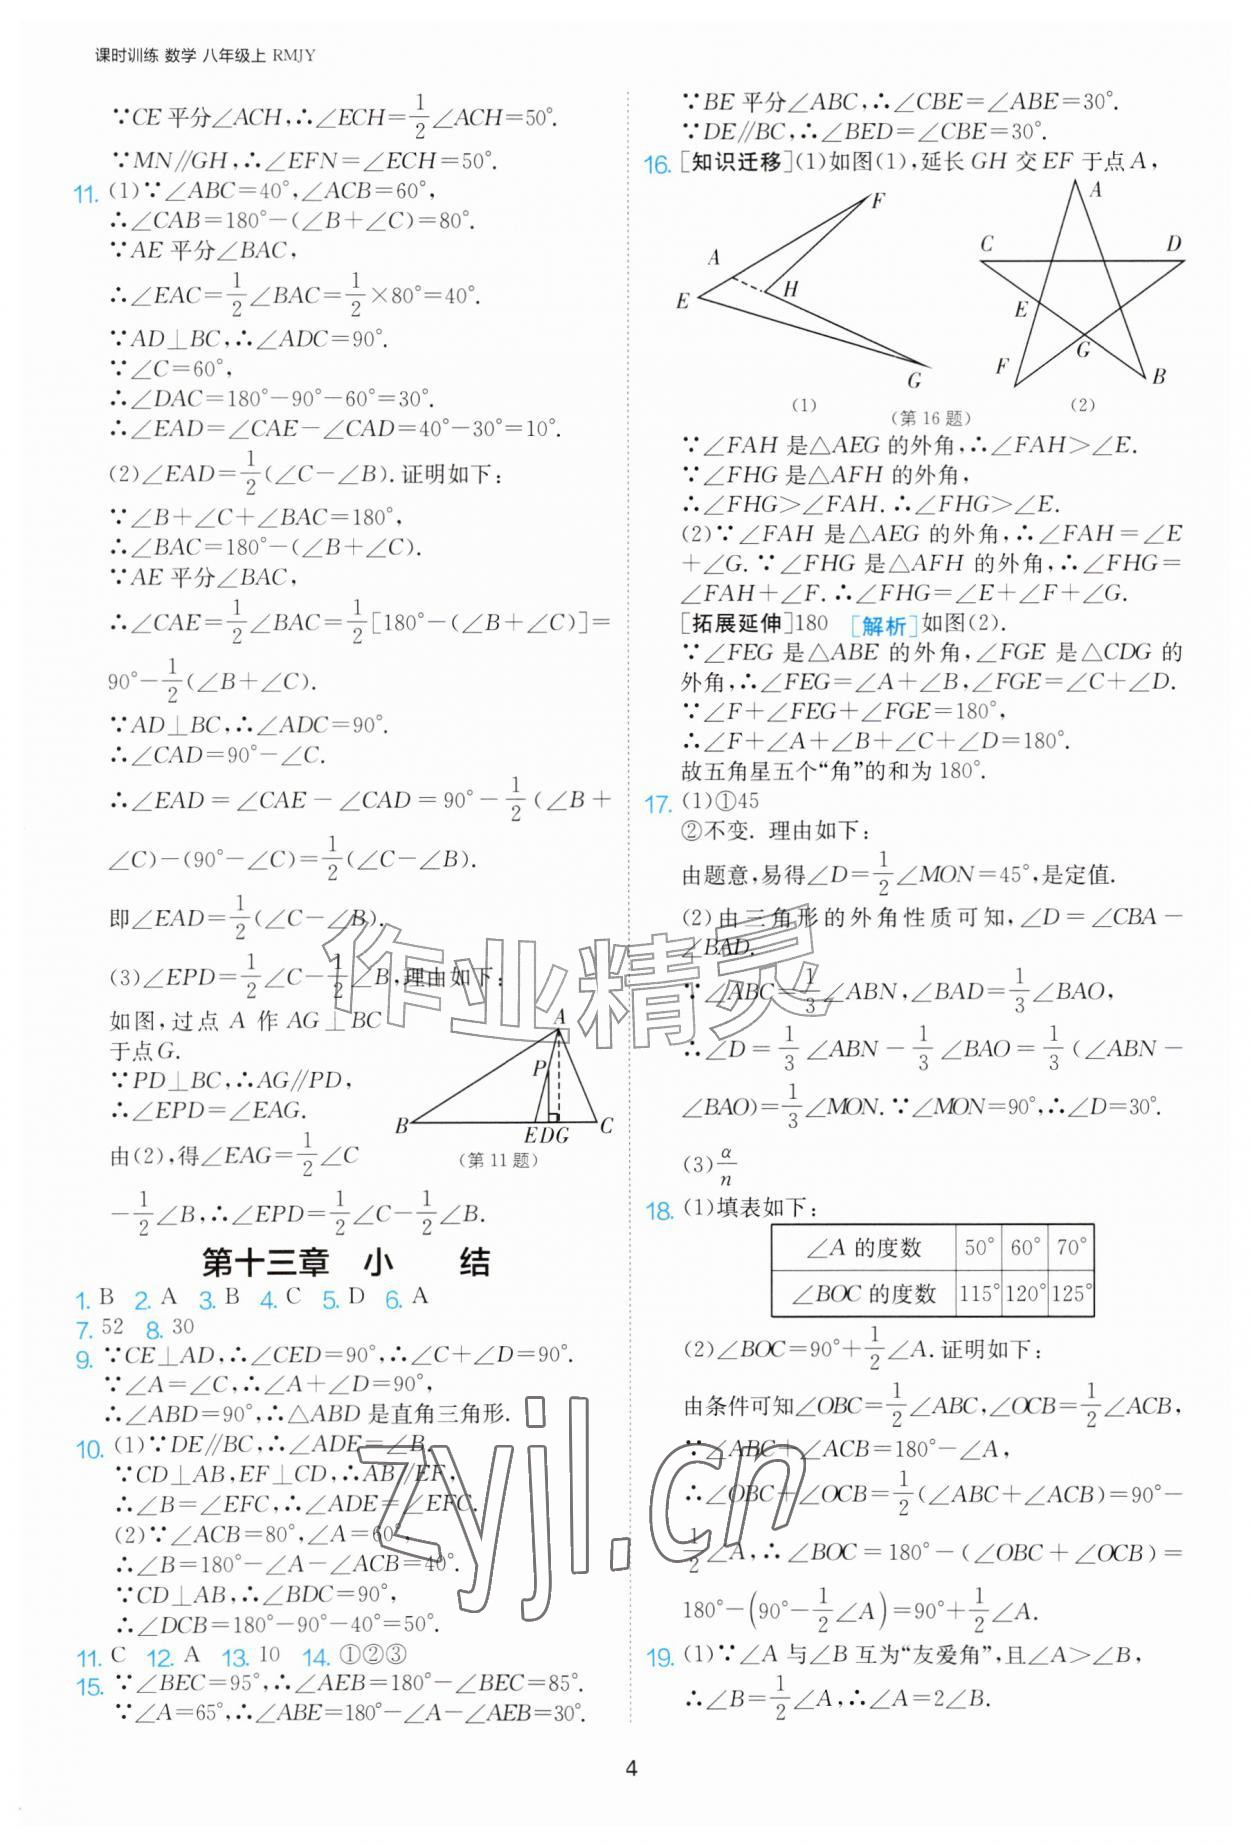 课时训练 数学 八年级上 RMJY
∵CE 平分∠ACH,∴∠ECH=1/2∠ACH=50°.
∵MN∥GH,∴∠EFN=∠ECH=50°.
11. (1)∵∠ABC=40°,∠ACB=60°,
∴∠CAB=180°-(∠B+∠C)=80°.
∵AE 平分∠BAC,
∴∠EAC=1/2∠BAC=1/2×80°=40°.
∵AD⊥BC,∴∠ADC=90°.
∵∠C=60°,
∴∠DAC=180°-90°-60°=30°.
∴∠EAD=∠CAE-∠CAD=40°-30°=10°.
(2)∠EAD=1/2(∠C-∠B).证明如下:
∵∠B+∠C+∠BAC=180°,
∴∠BAC=180°-(∠B+∠C).
∵AE 平分∠BAC,
∴∠CAE=1/2∠BAC=1/2[180°-(∠B+∠C)]=
90°-1/2(∠B+∠C).
∵AD⊥BC,∴∠ADC=90°.
∴∠CAD=90°-∠C.
∴∠EAD=∠CAE-∠CAD=90°-1/2(∠B+
∠C)-(90°-∠C)=1/2(∠C-∠B).
即∠EAD=1/2(∠C-∠B).
(3)∠EPD=1/2∠C-1/2∠B,理由如下:
如图,过点 A 作 AG⊥BC
于点G.
∵PD⊥BC,∴AG∥PD,
∴∠EPD=∠EAG.
由(2),得∠EAG=1/2∠C
-1/2∠B,∴∠EPD=1/2∠C-1/2∠B.
A
P
B
E D G
C
(第11题)
第十三章 小 结
1. B 2. A 3. B 4. C 5. D 6. A
7. 52 8. 30
9. ∵CE⊥AD,∴∠CED=90°,∴∠C+∠D=90°.
∵∠A=∠C,∴∠A+∠D=90°,
∴∠ABD=90°,∴△ABD 是直角三角形.
10. (1)∵DE∥BC,∴∠ADE=∠B.
∵CD⊥AB,EF⊥CD,∴AB∥EF,
∴∠B=∠EFC,∴∠ADE=∠EFC.
(2)∵∠ACB=80°,∠A=60°,
∴∠B=180°-∠A-∠ACB=40°.
∵CD⊥AB,∴∠BDC=90°,
∴∠DCB=180°-90°-40°=50°.
11. C 12. A 13. 10 14. ①②③
15. ∵∠BEC=95°,∴∠AEB=180°-∠BEC=85°.
∵∠A=65°,∴∠ABE=180°-∠A-∠AEB=30°.
∵BE 平分∠ABC,∴∠CBE=∠ABE=30°.
∵DE∥BC,∴∠BED=∠CBE=30°.
16. [知识迁移](1)如图(1),延长 GH 交 EF 于点 A,
F
A
H
E
G
(1)
A
C
D
E
G
F
B
(2)
(第16题)
∵∠FAH 是△AEG 的外角,∴∠FAH>∠E.
∵∠FHG 是△AFH 的外角,
∴∠FHG>∠FAH.∴∠FHG>∠E.
(2)∵∠FAH 是△AEG 的外角,∴∠FAH=∠E
+∠G.∵∠FHG 是△AFH 的外角,∴∠FHG=
∠FAH+∠F.∴∠FHG=∠E+∠F+∠G.
[拓展延伸]180 [解析]如图(2).
∵∠FEG 是△ABE 的外角,∠FGE 是△CDG 的
外角,∴∠FEG=∠A+∠B,∠FGE=∠C+∠D.
∵∠F+∠FEG+∠FGE=180°,
∴∠F+∠A+∠B+∠C+∠D=180°.
故五角星五个“角”的和为 180°.
17. (1)①45
②不变. 理由如下:
由题意,易得∠D=1/2∠MON=45°,是定值.
(2)由三角形的外角性质可知,∠D=∠CBA-
∠BAD.
∵∠ABC=1/3∠ABN,∠BAD=1/3∠BAO,
∴∠D=1/3∠ABN-1/3∠BAO=1/3(∠ABN-
∠BAO)=1/3∠MON.∵∠MON=90°,∴∠D=30°.
(3)α/n
18. (1)填表如下:
∠A 的度数 50° 60° 70°
∠BOC 的度数 115° 120° 125°
(2)∠BOC=90°+1/2∠A.证明如下:
由条件可知∠OBC=1/2∠ABC,∠OCB=1/2∠ACB,
∵∠ABC+∠ACB=180°-∠A,
∴∠OBC+∠OCB=1/2(∠ABC+∠ACB)=90°-
1/2∠A,∴∠BOC=180°-(∠OBC+∠OCB)=
180°-(90°-1/2∠A)=90°+1/2∠A.
19. (1)∵∠A 与∠B 互为“友爱角”,且∠A>∠B,
∴∠B=1/2∠A,∴∠A=2∠B.
4
作业精灵
zyjl.cn